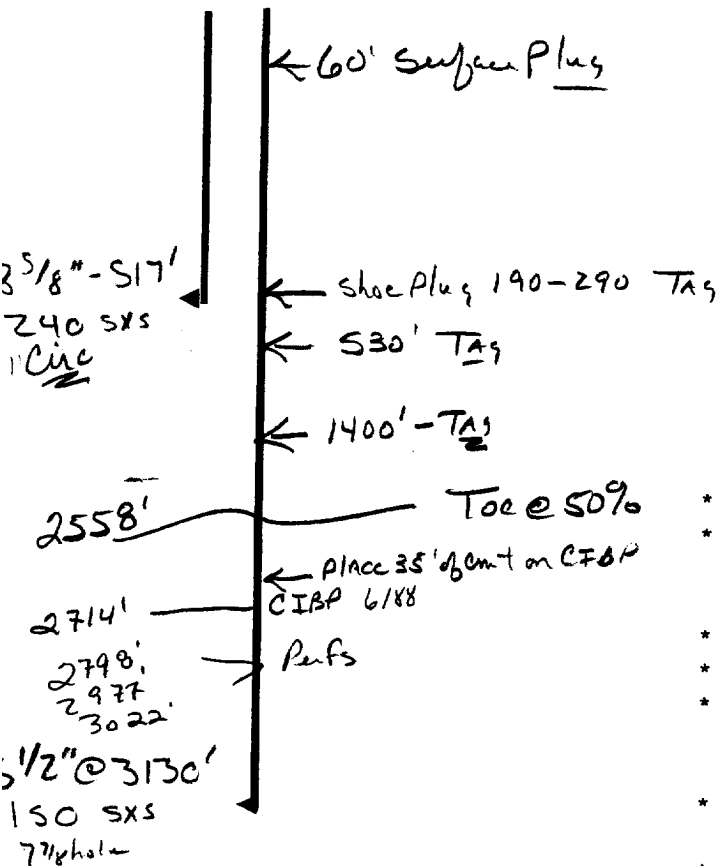 60' Surface Plug
3 5/8" - 517'
240 sxs
Circ
Shoe Plug 190-290 TAg
530' TAg
1400' - TAg
2558'
TOC @ 50% *
*
Place 35' of cmt on CIBP
CIBP 6/88
2714'
*
Perfs
2798'
*
2977
*
3022'
5 1/2" @ 3130'
150 sxs
*
7 7/8 hole